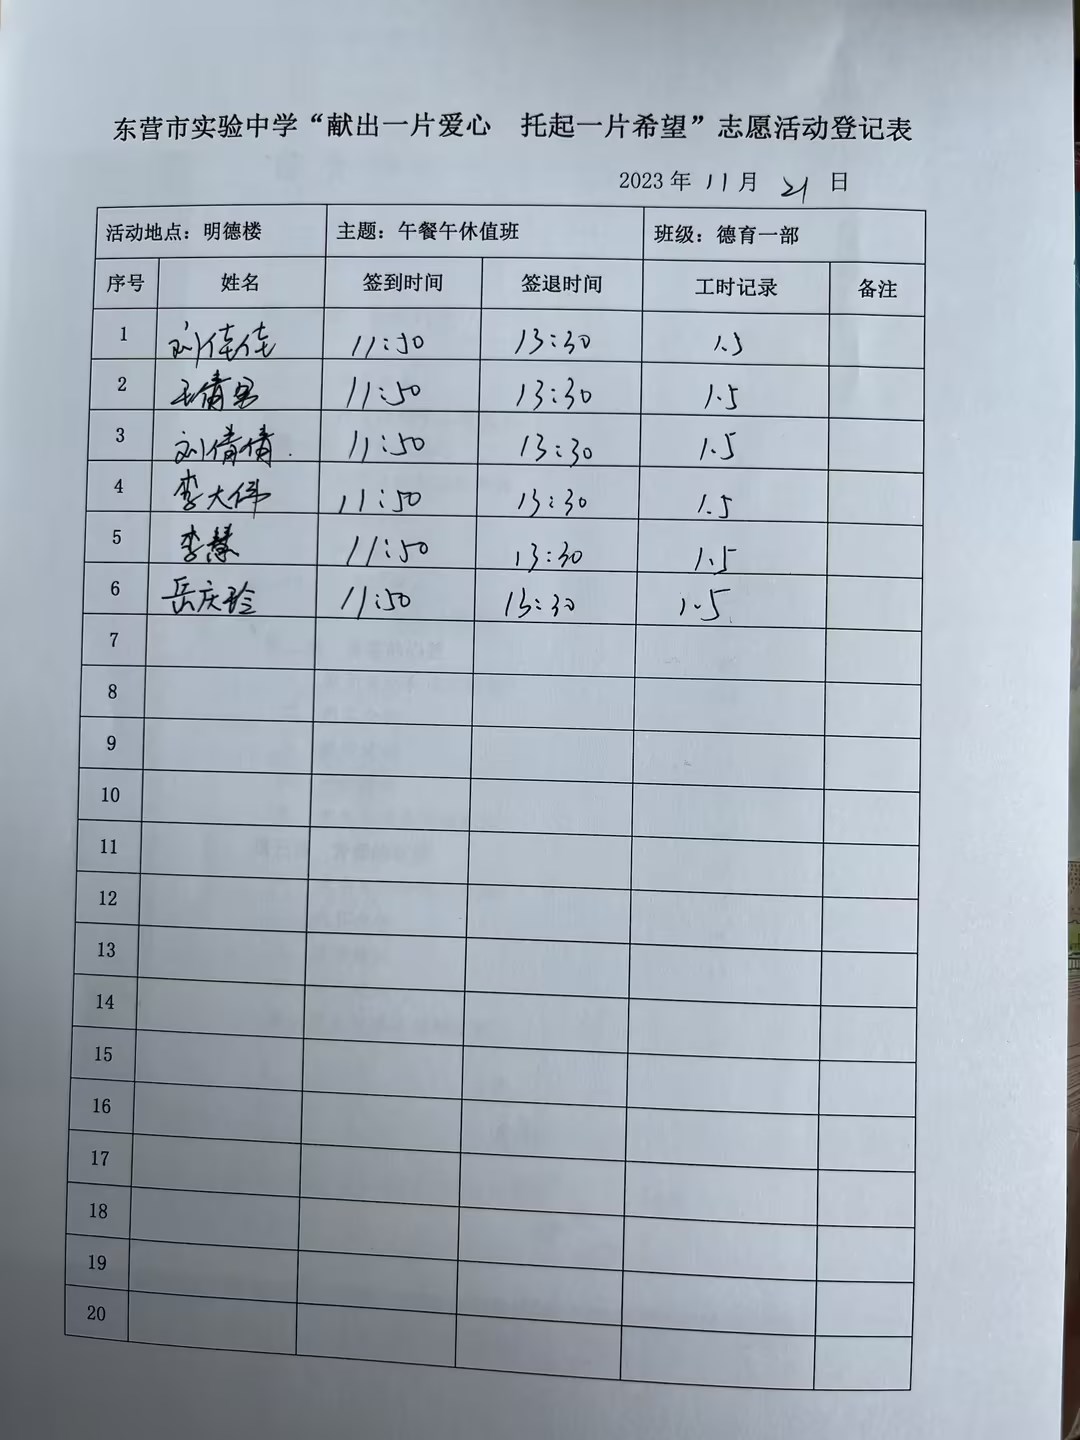 东营市实验中学“献出一片爱心 托起一片希望”志愿活动登记表
2023年 11月 21 日
活动地点：明德楼 主题：午餐午休值班 班级：德育一部
序号 姓名 签到时间 签退时间 工时记录 备注
1 刘佳佳 11:50 13:30 1.5
2 王倩男 11:50 13:30 1.5
3 刘倩倩 11:50 13:30 1.5
4 李大伟 11:50 13:30 1.5
5 李慧 11:50 13:30 1.5
6 岳庆玲 11:50 13:30 1.5
7
8
9
10
11
12
13
14
15
16
17
18
19
20